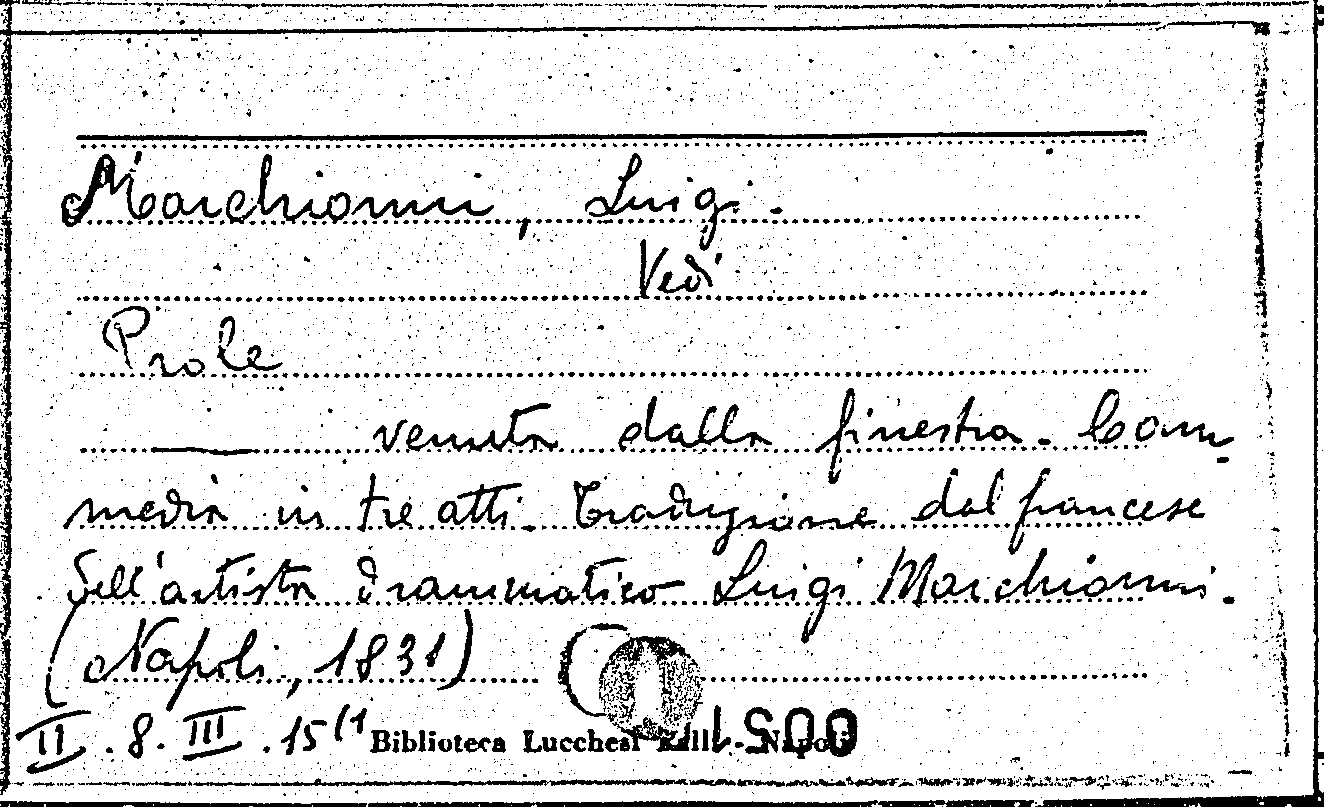 Marchionni, Luigi.
Vedi
Prole
—— venuta dalla finestra. Com-
media in tre atti. Traduzione dal francese
dell'artista drammatico Luigi Marchionni.
(Napoli, 1831)
II. 8. III. 15 (1
Biblioteca Lucchesi Palli - Napoli